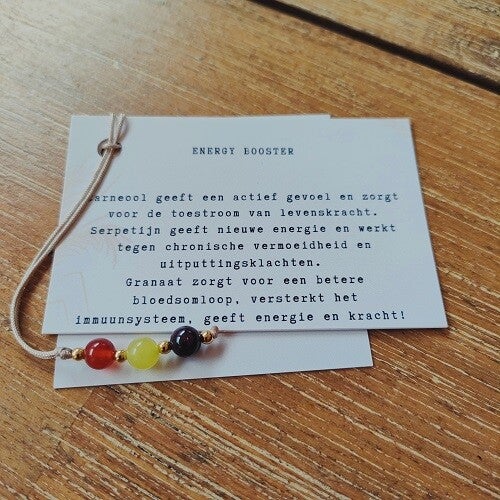 ENERGY BOOSTER
Carneool geeft een actief gevoel en zorgt
voor de toestroom van levenskracht.
Serpetijn geeft nieuwe energie en werkt
tegen chronische vermoeidheid en
uitputtingsklachten.
Granaat zorgt voor een betere
bloedsomloop, versterkt het
immuunsysteem, geeft energie en kracht!